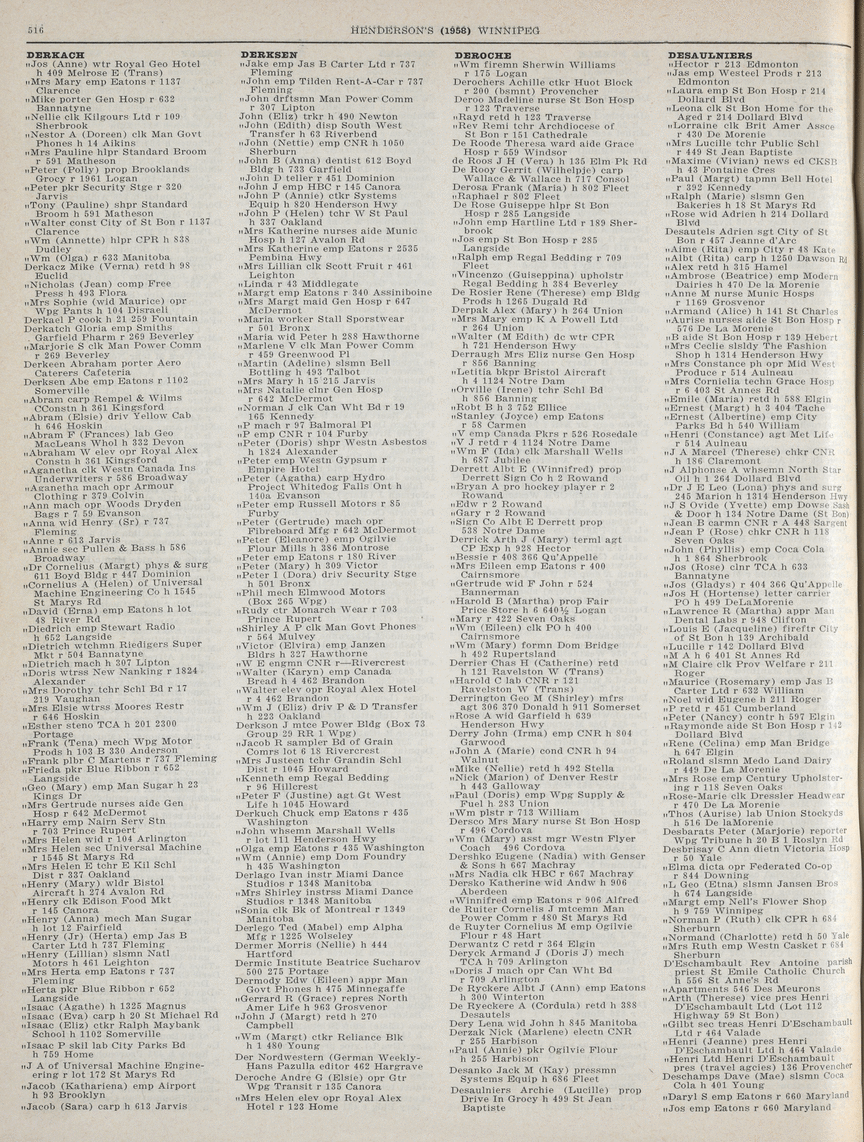 516
HENDERSON'S (1958) WINNIPEG
DERKACH
„Jos (Anne) wtr Royal Geo Hotel
h 409 Melrose E (Trans)
„Mrs Mary emp Eatons r 1137
Clarence
„Mike porter Gen Hosp r 632
Bannatyne
„Nellie clk Kilgours Ltd r 109
Sherbrook
„Nestor A (Doreen) clk Man Govt
Phones h 14 Aikins
„Mrs Pauline hlpr Standard Broom
r 591 Matheson
„Peter (Polly) prop Brooklands
Grocy r 1961 Logan
„Peter pkr Security Stge r 320
Jarvis
„Tony (Pauline) shpr Standard
Broom h 591 Matheson
„Walter const City of St Bon r 1137
Clarence
„Wm (Annette) hlpr CPR h 838
Dudley
„Wm (Olga) r 633 Manitoba
Derkacz Mike (Verna) retd h 98
Euclid
„Nicholas (Jean) comp Free
Press h 493 Flora
„Mrs Sophie (wid Maurice) opr
Wpg Pants h 104 Disraeli
Derkael P cook h 21 259 Fountain
Derkatch Gloria emp Smiths
Garfield Pharm r 269 Beverley
„Marjorie S clk Man Power Comm
r 269 Beverley
Derkeen Abraham porter Aero
Caterers Cafeteria
Derksen Abe emp Eatons r 1102
Somerville
„Abram carp Rempel & Wilms
CConstn h 361 Kingsford
„Abram (Elsie) driv Yellow Cab
h 646 Hoskin
„Abram F (Frances) lab Geo
MacLeans Whol h 332 Devon
„Abraham W elev opr Royal Alex
Constn h 361 Kingsford
„Aganetha clk Westn Canada Ins
Underwriters r 586 Broadway
„Aganetha mach opr Armour
Clothing r 379 Colvin
„Ann mach opr Woods Dryden
Bags r 7 59 Evanson
„Anna wid Henry (Sr) r 737
Fleming
„Anne r 613 Jarvis
„Annie sec Pullen & Bass h 586
Broadway
„Dr Cornelius (Margt) phys & surg
611 Boyd Bldg r 447 Dominion
„Cornelius A (Helen) of Universal
Machine Engineering Co h 1545
St Marys Rd
„David (Erna) emp Eatons h lot
48 River Rd
„Diedrich emp Stewart Radio
h 652 Langside
„Dietrich wtchmn Riedigers Super
Mkt r 504 Bannatyne
„Dietrich mach h 307 Lipton
„Doris wtrss New Nanking r 1824
Alexander
„Mrs Dorothy tchr Schl Bd r 17
219 Vaughan
„Mrs Elsie wtrss Moores Restr
r 646 Hoskin
„Esther steno TCA h 201 2300
Portage
„Frank (Tena) mech Wpg Motor
Prods h 103 B 330 Anderson
„Frank plbr C Martens r 737 Fleming
„Frieda pkr Blue Ribbon r 652
Langside
„Geo (Mary) emp Man Sugar h 23
Kings Dr
„Mrs Gertrude nurses aide Gen
Hosp r 642 McDermot
„Harry emp Nairn Serv Stn
r 703 Prince Rupert
„Mrs Helen wid r 104 Arlington
„Mrs Helen sec Universal Machine
r 1545 St Marys Rd
„Mrs Helen E tchr E Kil Schl
Dist r 337 Oakland
„Henry (Mary) wldr Bistol
Aircraft h 274 Avalon Rd
„Henry clk Edison Food Mkt
r 145 Canora
„Henry (Anna) mech Man Sugar
h lot 12 Fairfield
„Henry (Jr) (Herta) emp Jas B
Carter Ltd h 737 Fleming
„Henry (Lillian) slsmn Natl
Motors h 461 Leighton
„Mrs Herta emp Eatons r 737
Fleming
„Herta pkr Blue Ribbon r 652
Langside
„Isaac (Agathe) h 1325 Magnus
„Isaac (Eva) carp h 20 St Michael Rd
„Isaac (Eliz) ctkr Ralph Maybank
School h 1102 Somerville
„Isaac P skil lab City Parks Bd
h 759 Home
„J A of Universal Machine Engineering
r lot 172 St Marys Rd
„Jacob (Kathariena) emp Airport
h 93 Brooklyn
„Jacob (Sara) carp h 613 Jarvis
DERKSEN
„Jake emp Jas B Carter Ltd r 737
Fleming
„John emp Tilden Rent-A-Car r 737
Fleming
„John drftsmn Man Power Comm
r 307 Lipton
John (Eliz) trkr h 490 Newton
„John (Edith) disp South West
Transfer h 63 Riverbend
„John (Nettie) emp CNR h 1050
Sherburn
„John B (Anna) dentist 612 Boyd
Bldg h 733 Garfield
„John D teller r 451 Dominion
„John J emp HBC r 145 Canora
„John P (Annie) ctkr Systems
Equip h 820 Henderson Hwy
„John P (Helen) tchr W St Paul
h 337 Oakland
„Mrs Katherine nurses aide Munic
Hosp h 127 Avalon Rd
„Mrs Katherine emp Eatons r 2535
Pembina Hwy
„Mrs Lillian clk Scott Fruit r 461
Leighton
„Linda r 43 Middlegate
„Margt emp Eatons r 340 Assiniboine
„Mrs Margt maid Gen Hosp r 647
McDermot
„Maria worker Stall Sporstwear
r 501 Bronx
„Maria wid Peter h 288 Hawthorne
„Marlene V clk Man Power Comm
r 459 Greenwood Pl
„Martin (Adeline) slsmn Bell
Bottling h 493 Talbot
„Mrs Mary h 16 215 Jarvis
„Mrs Natalie clnr Gen Hosp
r 642 McDermot
„Norman J clk Can Wht Bd r 19
165 Kennedy
„P mach r 97 Balmoral Pl
„P emp CNR r 104 Furby
„Peter (Doris) shpr Westn Asbestos
h 1824 Alexander
„Peter emp Westn Gypsum r
Empire Hotel
„Peter (Agatha) carp Hydro
Project Whitedog Falls Ont h
140a Evanson
„Peter emp Russell Motors r 85
Furby
„Peter (Gertrude) mach opr
Fibreboard Mfg r 642 McDermot
„Peter (Eleanore) emp Ogilvie
Flour Mills h 386 Montrose
„Peter emp Eatons r 180 River
„Peter (Mary) h 309 Victor
„Peter I (Dora) driv Security Stge
h 501 Bronx
„Phil mech Elmwood Motors
(Box 265 Wpg)
„Rudy ctr Monarch Wear r 703
Prince Rupert
„Shirley A P clk Man Govt Phones
r 564 Mulvey
„Victor (Elvira) emp Janzen
Bldrs h 327 Hawthorne
„W E engmn CNR r—Rivercrest
„Walter (Karyn) emp Canada
Bread h 4 462 Brandon
„Walter elev opr Royal Alex Hotel
r 4 462 Brandon
„Wm J (Eliz) driv P & D Transfer
h 223 Oakland
Derkson J mtce Power Bldg (Box 73
Group 29 RR 1 Wpg)
„Jacob R sampler Bd of Grain
Comrs lot 6 18 Rivercrest
„Mrs Justeen tchr Grandin Schl
Dist r 1045 Howard
„Kenneth emp Regal Bedding
r 96 Hillcrest
„Peter F (Justine) agt Gt West
Life h 1045 Howard
Derkuch Chuck emp Eatons r 435
Washington
„John whsemn Marshall Wells
r lot 111 Henderson Hwy
„Olga emp Eatons r 435 Washington
„Wm (Annie) emp Dom Foundry
h 435 Washington
Derlago Ivan instr Miami Dance
Studios r 1348 Manitoba
„Mrs Shirley instrss Miami Dance
Studios r 1348 Manitoba
„Sonia clk Bk of Montreal r 1349
Manitoba
Derlego Ted (Mabel) emp Alpha
Mfg r 1225 Wolseley
Dermer Morris (Nellie) h 444
Hartford
Dermic Institute Beatrice Sucharov
500 275 Portage
Dermody Edw (Eileen) appr Man
Govt Phones h 475 Minnegaffe
„Gerrard R (Grace) repres North
Amer Life h 963 Grosvenor
„John J (Margt) retd h 270
Campbell
„Wm (Margt) ctkr Reliance Blk
h 1 480 Young
Der Nordwestern (German Weekly-
Hans Pazulla editor 462 Hargrave
Deroche Andre G (Elsie) opr Gtr
Wpg Transit r 135 Canora
„Mrs Helen elev opr Royal Alex
Hotel r 123 Home
DEROCHE
„Wm firemn Sherwin Williams
r 175 Logan
Derochers Achille ctkr Huot Block
r 200 (bsmnt) Provencher
Deroo Madeline nurse St Bon Hosp
r 123 Traverse
„Rayd retd h 123 Traverse
„Rev Remi tchr Archdiocese of
St Bon r 151 Cathedrale
De Roode Theresa ward aide Grace
Hosp r 559 Windsor
de Roos J H (Vera) h 135 Elm Pk Rd
De Rooy Gerrit (Wilhelpje) carp
Wallace & Wallace h 717 Consol
Derosa Frank (Maria) h 802 Fleet
„Raphael r 802 Fleet
De Rose Guiseppe hlpr St Bon
Hosp r 285 Langside
„John emp Hartline Ltd r 189 Sherbrook
„Jos emp St Bon Hosp r 285
Langside
„Ralph emp Regal Bedding r 709
Fleet
„Vincenzo (Guiseppina) upholstr
Regal Bedding h 384 Beverley
De Rosier Rene (Therese) emp Bldg
Prods h 1265 Dugald Rd
Derpak Alex (Mary) h 264 Union
„Mrs Mary emp K A Powell Ltd
r 264 Union
„Walter (M Edith) dc wtr CPR
h 721 Banning
Derraugh Mrs Eliz nurse Gen Hosp
r 856 Banning
„Letitia bkpr Bristol Aircraft
h 4 1124 Notre Dam
„Orville (Irene) tchr Schl Bd
h 856 Banning
„Robt B h 3 752 Ellice
„Stanley (Joyce) emp Eatons
r 58 Carmen
„V emp Canada Pkrs r 526 Rosedale
„V J retd r 4 1124 Notre Dame
„Wm F (Ida) clk Marshall Wells
h 687 Jubilee
Derrett Albt E (Winnifred) prop
Derrett Sign Co h 2 Rowand
„Bryan A pro hockey player r 2
Rowand
„Edw r 2 Rowand
„Gary r 2 Rowand
„Sign Co Albt E Derrett prop
538 Notre Dame
Derrick Arth J (Mary) terml agt
CP Exp h 928 Hector
„Bessie r 408 366 Qu'Appelle
„Mrs Eileen emp Eatons r 400
Cairnsmore
„Gertrude wid F John r 524
Bannerman
„Harold B (Martha) prop Fair
Price Store h 6 640½ Logan
„Mary r 422 Seven Oaks
„Wm (Eileen) clk PO h 400
Cairnsmore
„Wm (Mary) formn Dom Bridge
h 492 Rupertsland
Derrier Chas H (Catherine) retd
h 121 Ravelston W (Trans)
„Harold C lab CNR r 121
Ravelston W (Trans)
Derrington Geo M (Shirley) mfrs
agt 306 370 Donald h 911 Somerset
„Rose A wid Garfield h 639
Henderson Hwy
Derry John (Irma) emp CNR h 804
Garwood
„John A (Marie) cond CNR h 94
Walnut
„Mike (Nellie) retd h 492 Stella
„Nick (Marion) of Denver Restr
h 443 Galloway
„Paul (Doris) emp Wpg Supply &
Fuel h 283 Union
„Wm plstr r 713 William
Dersco Mrs Mary nurse St Bon Hosp
r 496 Cordova
„Wm (Mary) asst mgr Westn Flyer
Coach 496 Cordova
Dershko Eugene (Nadia) with Genser
& Sons h 667 Machray
„Mrs Nadia clk HBC r 667 Machray
Dersko Katherine wid Andw h 906
Aberdeen
„Winnifred emp Eatons r 906 Alfred
de Ruiter Cornelis J mtcemn Man
Power Comm r 480 St Marys Rd
de Ruyter Cornelius M emp Ogilvie
Flour r 48 Hart
Derwantz C retd r 364 Elgin
Deryck Armand J (Doris J) mech
TCA h 709 Arlington
„Doris J mach opr Can Wht Bd
r 709 Arlington
De Ryckere Albt J (Ann) emp Eatons
h 300 Winterton
De Ryeckere A (Cordula) retd h 388
Desautels
Dery Lena wid John h 845 Manitoba
Derzak Nick (Marlene) electn CNR
r 255 Harbison
„Paul (Annie) pkr Ogilvie Flour
h 255 Harbison
Desanko Jack M (Kay) pressmn
Systems Equip h 686 Fleet
Desaulniers Archie (Lucille) prop
Drive In Grocy h 499 St Jean
Baptiste
DESAULNIERS
„Hector r 213 Edmonton
„Jas emp Westeel Prods r 213
Edmonton
„Laura emp St Bon Hosp r 214
Dollard Blvd
„Leona clk St Bon Home for the
Aged r 214 Dollard Blvd
„Lorraine clk Brit Amer Assce
r 430 De Morenie
„Mrs Lucille tchr Public Schl
r 449 St Jean Baptiste
„Maxime (Vivian) news ed CKSB
h 43 Fontaine Cres
„Paul (Margt) tapmn Bell Hotel
r 392 Kennedy
„Ralph (Marie) slsmn Gen
Bakeries h 18 St Marys Rd
„Rose wid Adrien h 214 Dollard
Blvd
Desautels Adrien sgt City of St
Bon r 457 Jeanne d'Arc
„Aime (Rita) emp City r 48 Kate
„Albt (Rita) carp h 1250 Dawson Rd
„Alex retd h 315 Hamel
„Ambrose (Beatrice) emp Modern
Dairies h 470 De la Morenie
„Anne M nurse Munic Hosps
r 1169 Grosvenor
„Armand (Alice) h 141 St Charles
„Aurise nurses aide St Bon Hosp r
576 De La Morenie
„B aide St Bon Hosp r 139 Hebert
„Mrs Cecile slsldy The Fashion
Shop h 1314 Henderson Hwy
„Mrs Constance ph opr Mid West
Produce r 514 Aulneau
„Mrs Cornielia techn Grace Hosp
r 6 403 St Annes Rd
„Emile (Maria) retd h 588 Elgin
„Ernest (Margt) h 3 404 Tache
„Ernest (Albertine) emp City
Parks Bd h 540 William
„Henri (Constance) agt Met Life
r 514 Aulneau
„J A Marcel (Therese) chkr CNR
h 186 Claremont
„J Alphonse A whsemn North Star
Oil h 1 264 Dollard Blvd
„Dr J E Leo (Lona) phys and surg
245 Marion h 1314 Henderson Hwy
„J S Ovide (Yvette) emp Dowse Sash
& Door h 134 Notre Dame (St Bon)
„Jean B carmn CNR r A 448 Sargent
„Jean P (Rose) chkr CNR h 118
Seven Oaks
„John (Phyllis) emp Coca Cola
h 1 864 Sherbrook
„Jos (Rose) clnr TCA h 633
Bannatyne
„Jos (Gladys) r 404 366 Qu'Appelle
„Jos H (Hortense) letter carrier
PO h 499 DeLaMorenie
„Lawrence R (Martha) appr Man
Dental Labs r 948 Clifton
„Louis E (Jacqueline) fireftr City
of St Bon h 139 Archibald
„Lucille r 142 Dollard Blvd
„M A h 6 401 St Annes Rd
„M Claire clk Prov Welfare r 211
Roger
„Maurice (Rosemary) emp Jas B
Carter Ltd r 632 William
„Noel wid Eugene h 211 Roger
„P retd r 451 Cumberland
„Peter (Nancy) contr h 597 Elgin
„Raymonde aide St Bon Hosp r 142
Dollard Blvd
„Rene (Celina) emp Man Bridge
h 647 Elgin
„Roland slsmn Medo Land Dairy
r 449 De La Morenie
„Mrs Rose emp Century Upholstering
r 118 Seven Oaks
„Rose-Marie clk Dressler Headwear
r 470 De La Morenie
„Thos (Aurise) lab Union Stockyds
h 516 De laMorenie
Desbarats Peter (Marjorie) reporter
Wpg Tribune h 20 B 1 Roslyn Rd
Desbrisay C Ann dietn Victoria Hosp
r 50 Yale
„Elma dicta opr Federated Co-op
r 844 Downing
„L Geo (Etna) slsmn Jansen Bros
h 674 Langside
„Margt emp Nell's Flower Shop
h 9 759 Winnipeg
„Norman P (Ruth) clk CPR h 684
Sherburn
„Normand (Charlotte) retd h 50 Yale
„Mrs Ruth emp Westn Casket r 684
Sherburn
D'Eschambault Rev Antoine parish
priest St Emile Catholic Church
h 556 St Anne's Rd
„Apartments 546 Des Meurons
„Arth (Therese) vice pres Henri
D'Eschambault Ltd (Lot 112
Highway 59 St Bon)
„Gilbt sec treas Henri D'Eschambault
Ltd r 464 Valade
„Henri (Jeanne) pres Henri
D'Eschambault Ltd h 464 Valade
„Henri Ltd Henri D'Eschambault
pres (travel agcies) 136 Provencher
Deschamps Dave (Mae) slsmn Coca
Cola h 401 Young
„Daryl S emp Eatons r 660 Maryland
„Jos emp Eatons r 660 Maryland